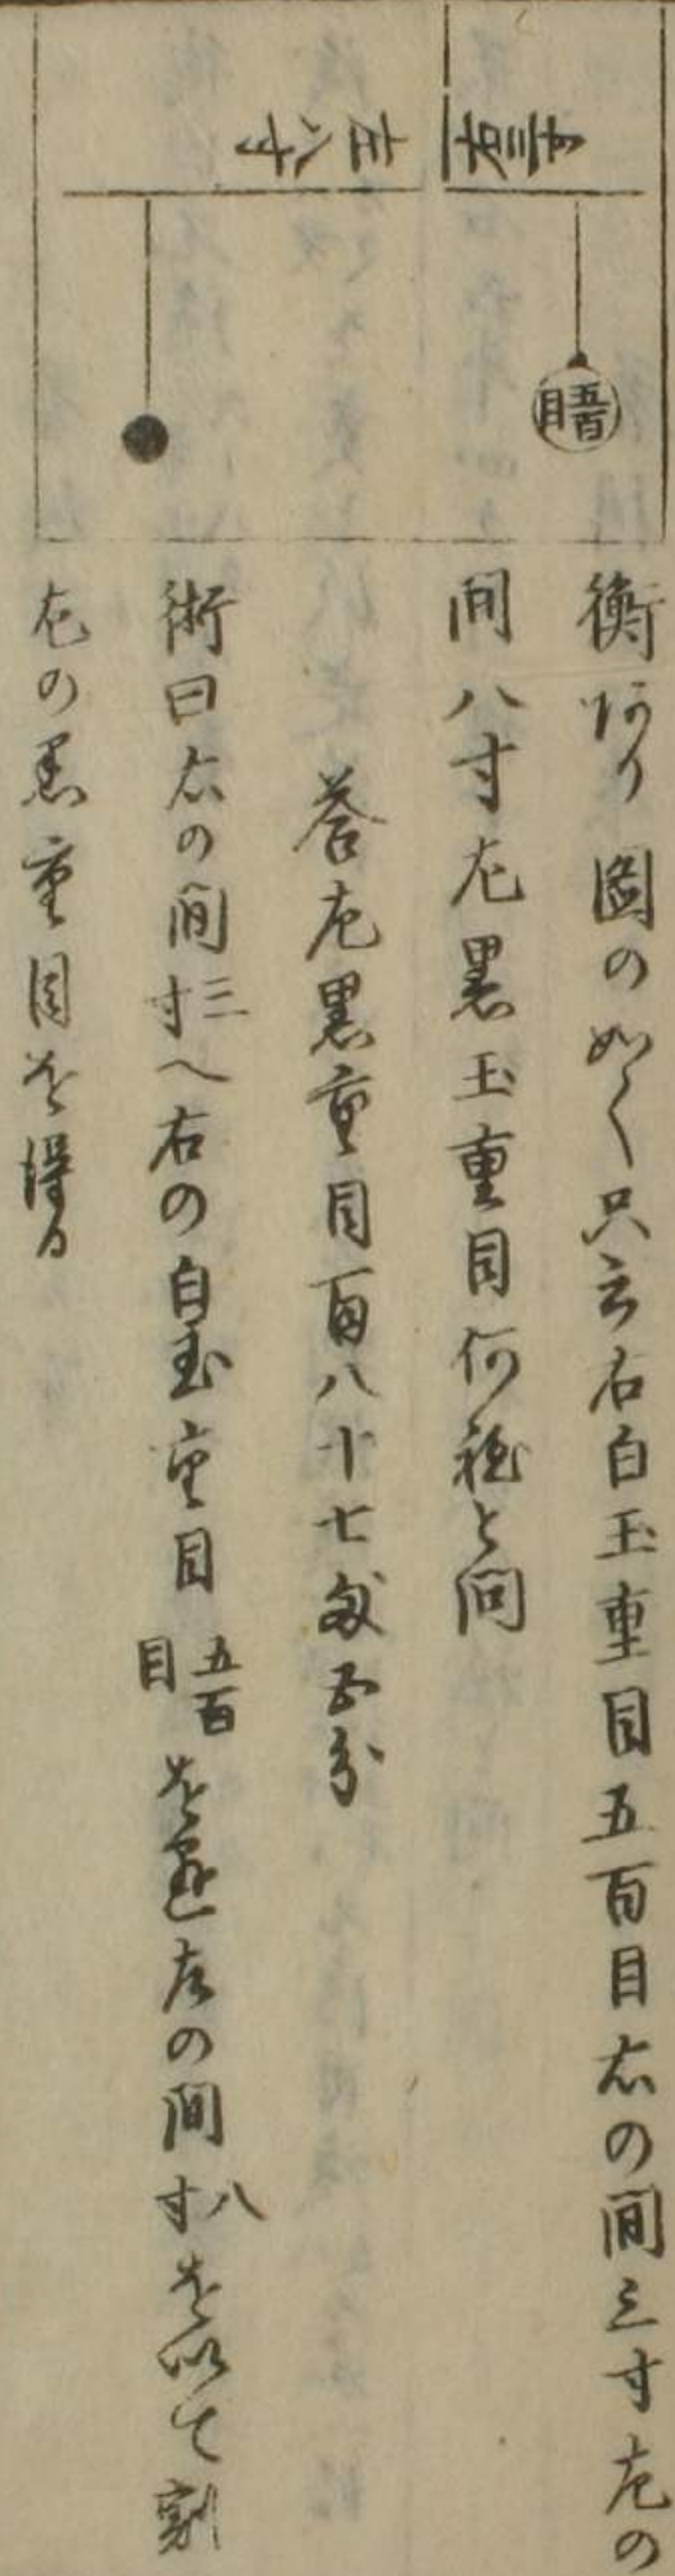 右三寸
左八寸
五百目
衡アリ圖の如く只云右白玉重目五百目右の間三寸左の
間八寸左黒玉重目何程と問
答左黒重目百八十七匁五分
術曰右の間三寸へ右の白玉重目五百目を乗左の間八寸を以て割
左の黒重目を得る